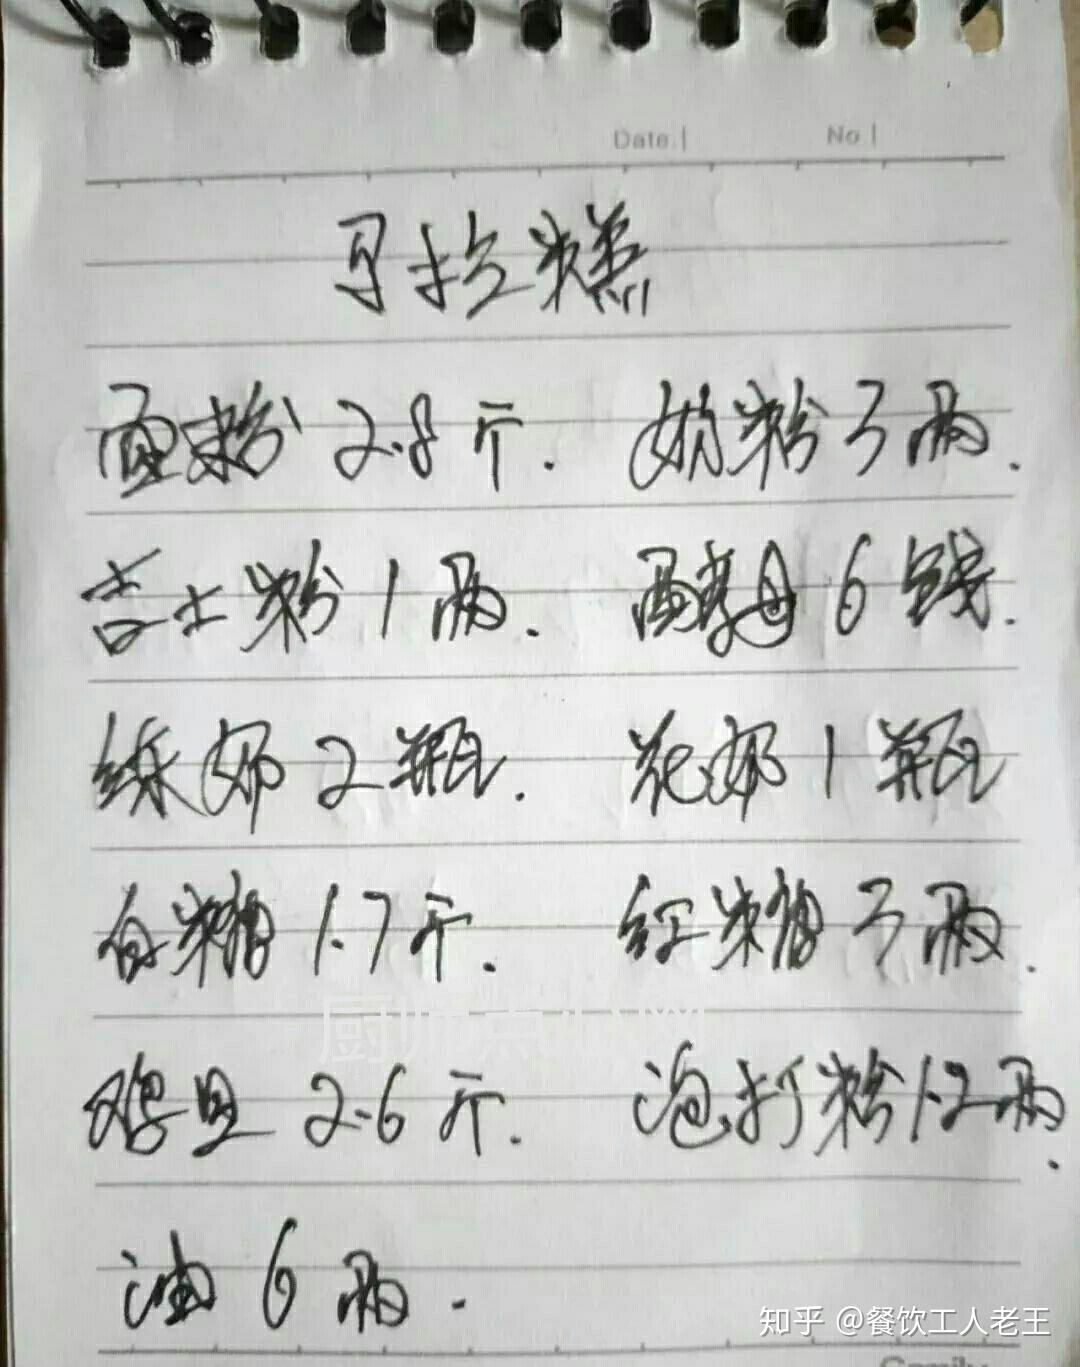 Date.
No
马拉糕
面粉2.8斤. 奶粉3两.
吉士粉1两. 酵母6钱.
炼奶2瓶. 花奶1瓶
白糖1.7斤. 红糖3两.
鸡旦2.6斤. 泡打粉1.2两.
油6两.
知乎 @餐饮工人老王